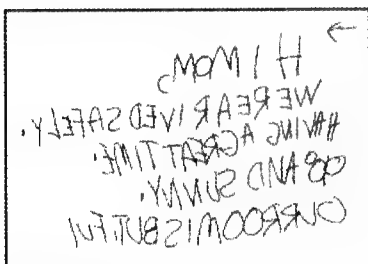 HI MOM,
WERE ARIVED SAFELY.
HAVING A GREAT TIME.
AND SUNNY.
OUR ROOM IS BUTIFUl